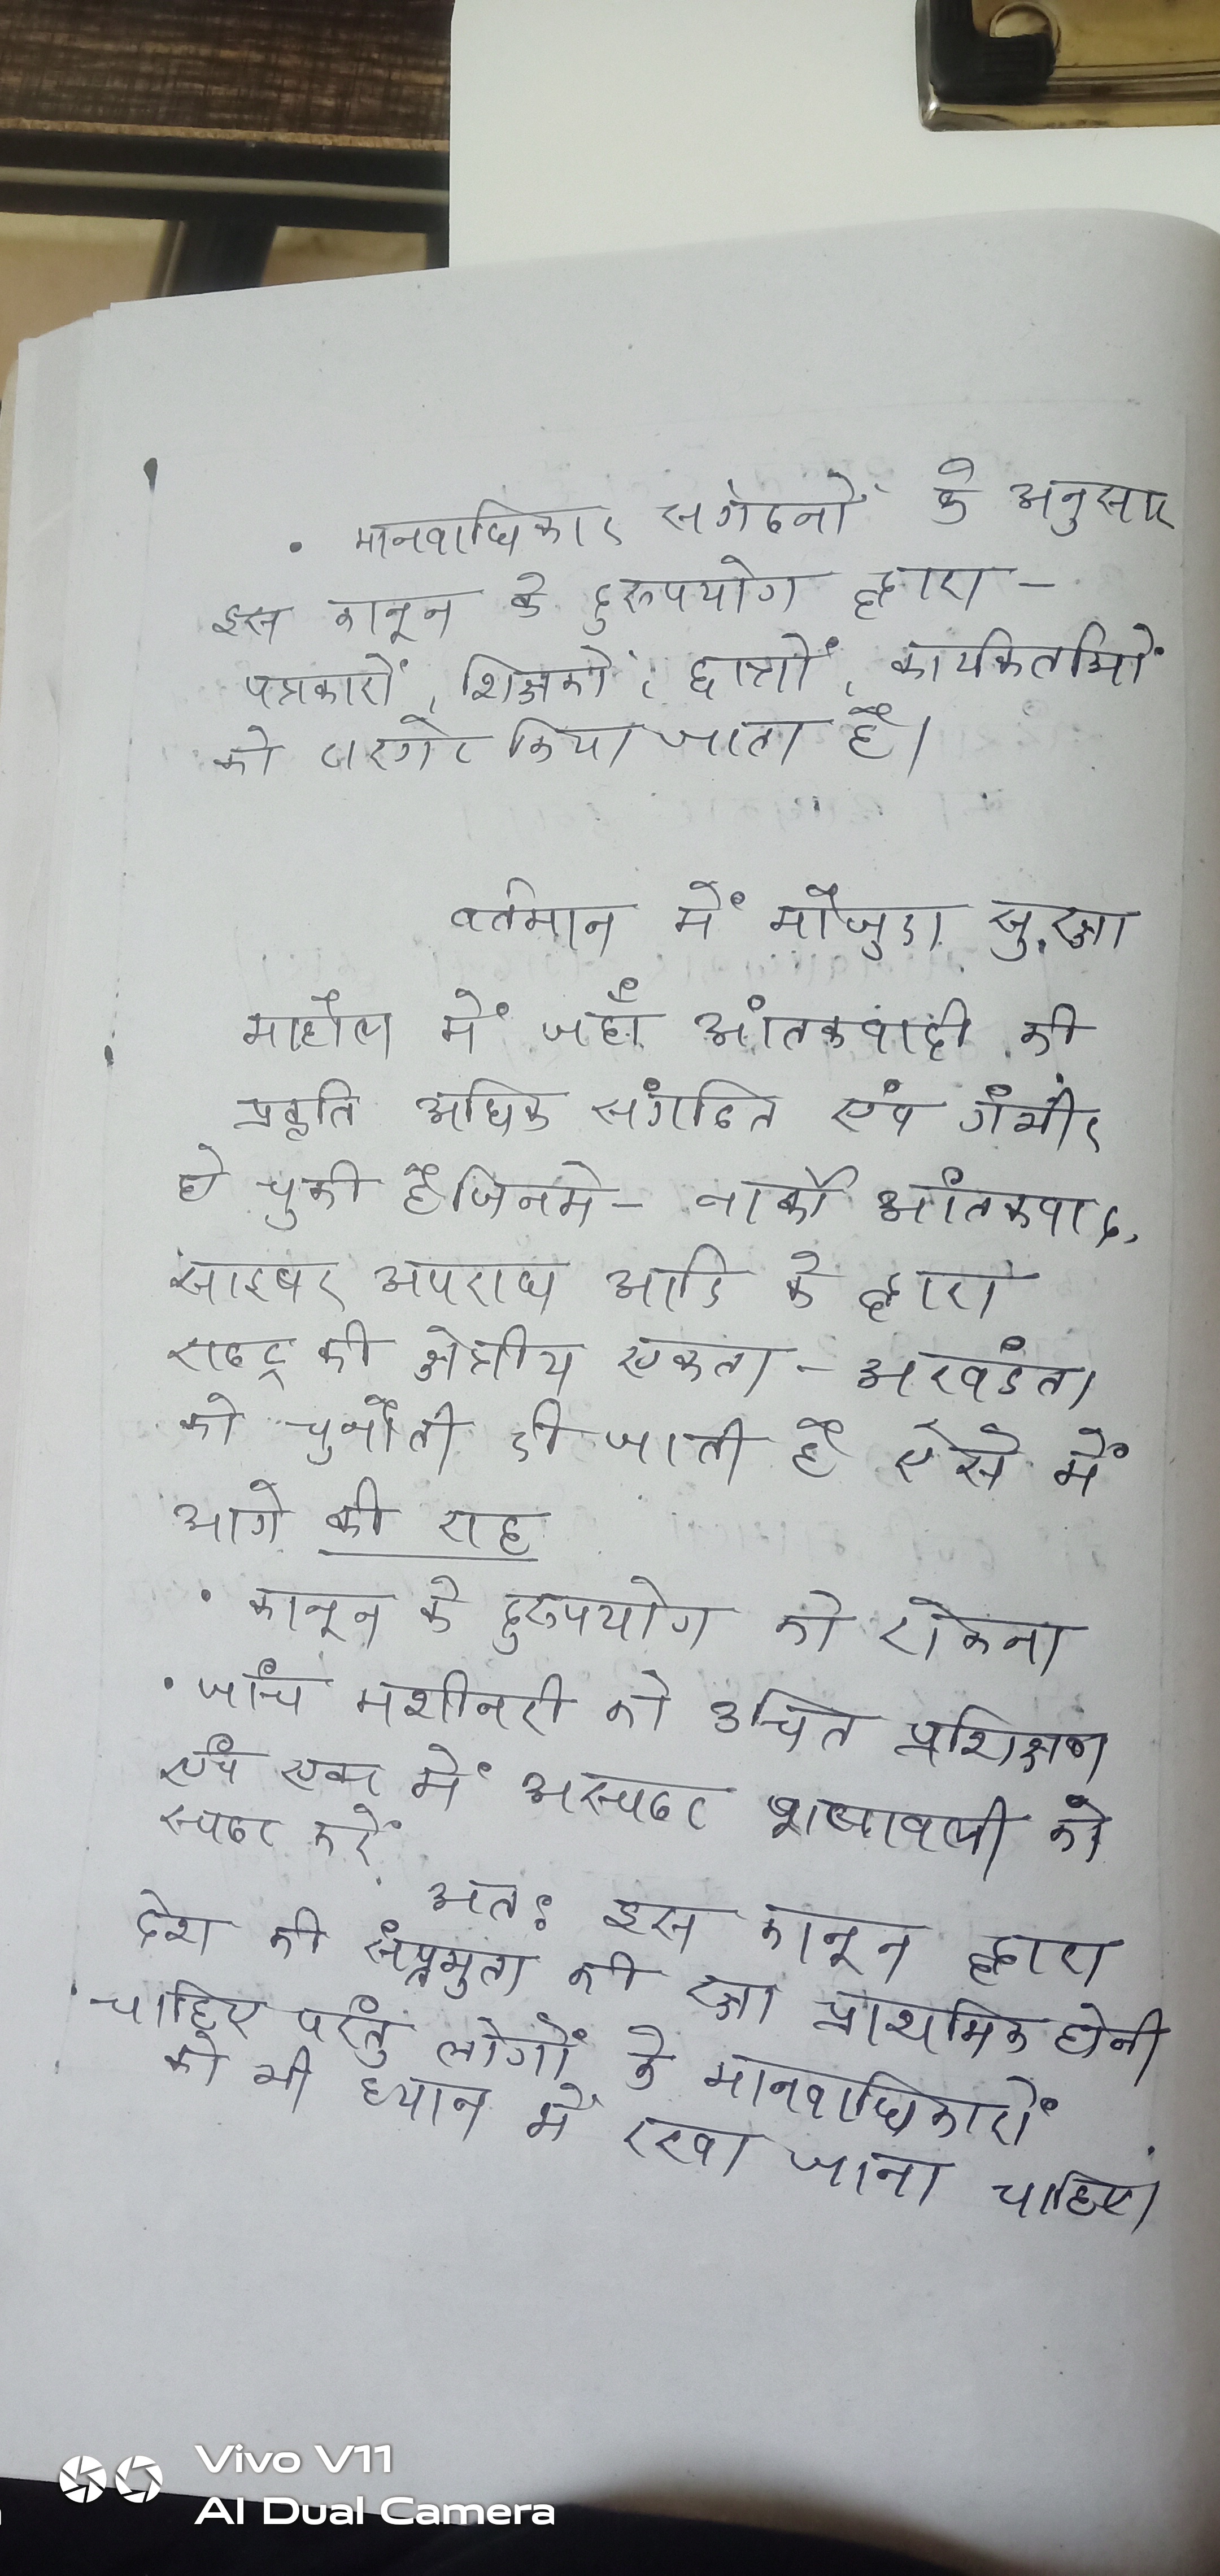 • मानवाधिकार सगंठनों के अनुसार
इस कानून के दुरुपयोग द्वारा -
पत्रकारों, शिक्षकों, छात्रों, कार्यकर्ताओं
को टारगेट किया जाता है।
वर्तमान में मौजुदा सुरक्षा
माहौल में जहाँ आंतकवादी की
प्रकृति अधिक संगठित एंव गंभीर
हो चुकी है जिनमे - नार्को आंतकवाद,
साइबर अपराध आदि के द्वारा
राष्ट्र की क्षेत्रीय एकता - अखंडता
को चुनौती दी जाती है ऐसे में
आगे की राह
• कानून के दुरुपयोग को रोकना
• जाँच मशीनरी को उचित प्रशिक्षण
एंव एक्ट में अस्पष्ट शब्दावली को
स्पष्ट करें
अतः इस कानून द्वारा
देश की संप्रभुता की रक्षा प्राथमिक होनी
चाहिए परंतु लोगों के मानवाधिकारों
को भी ध्यान में रखा जाना चाहिए।
Vivo V11
AI Dual Camera